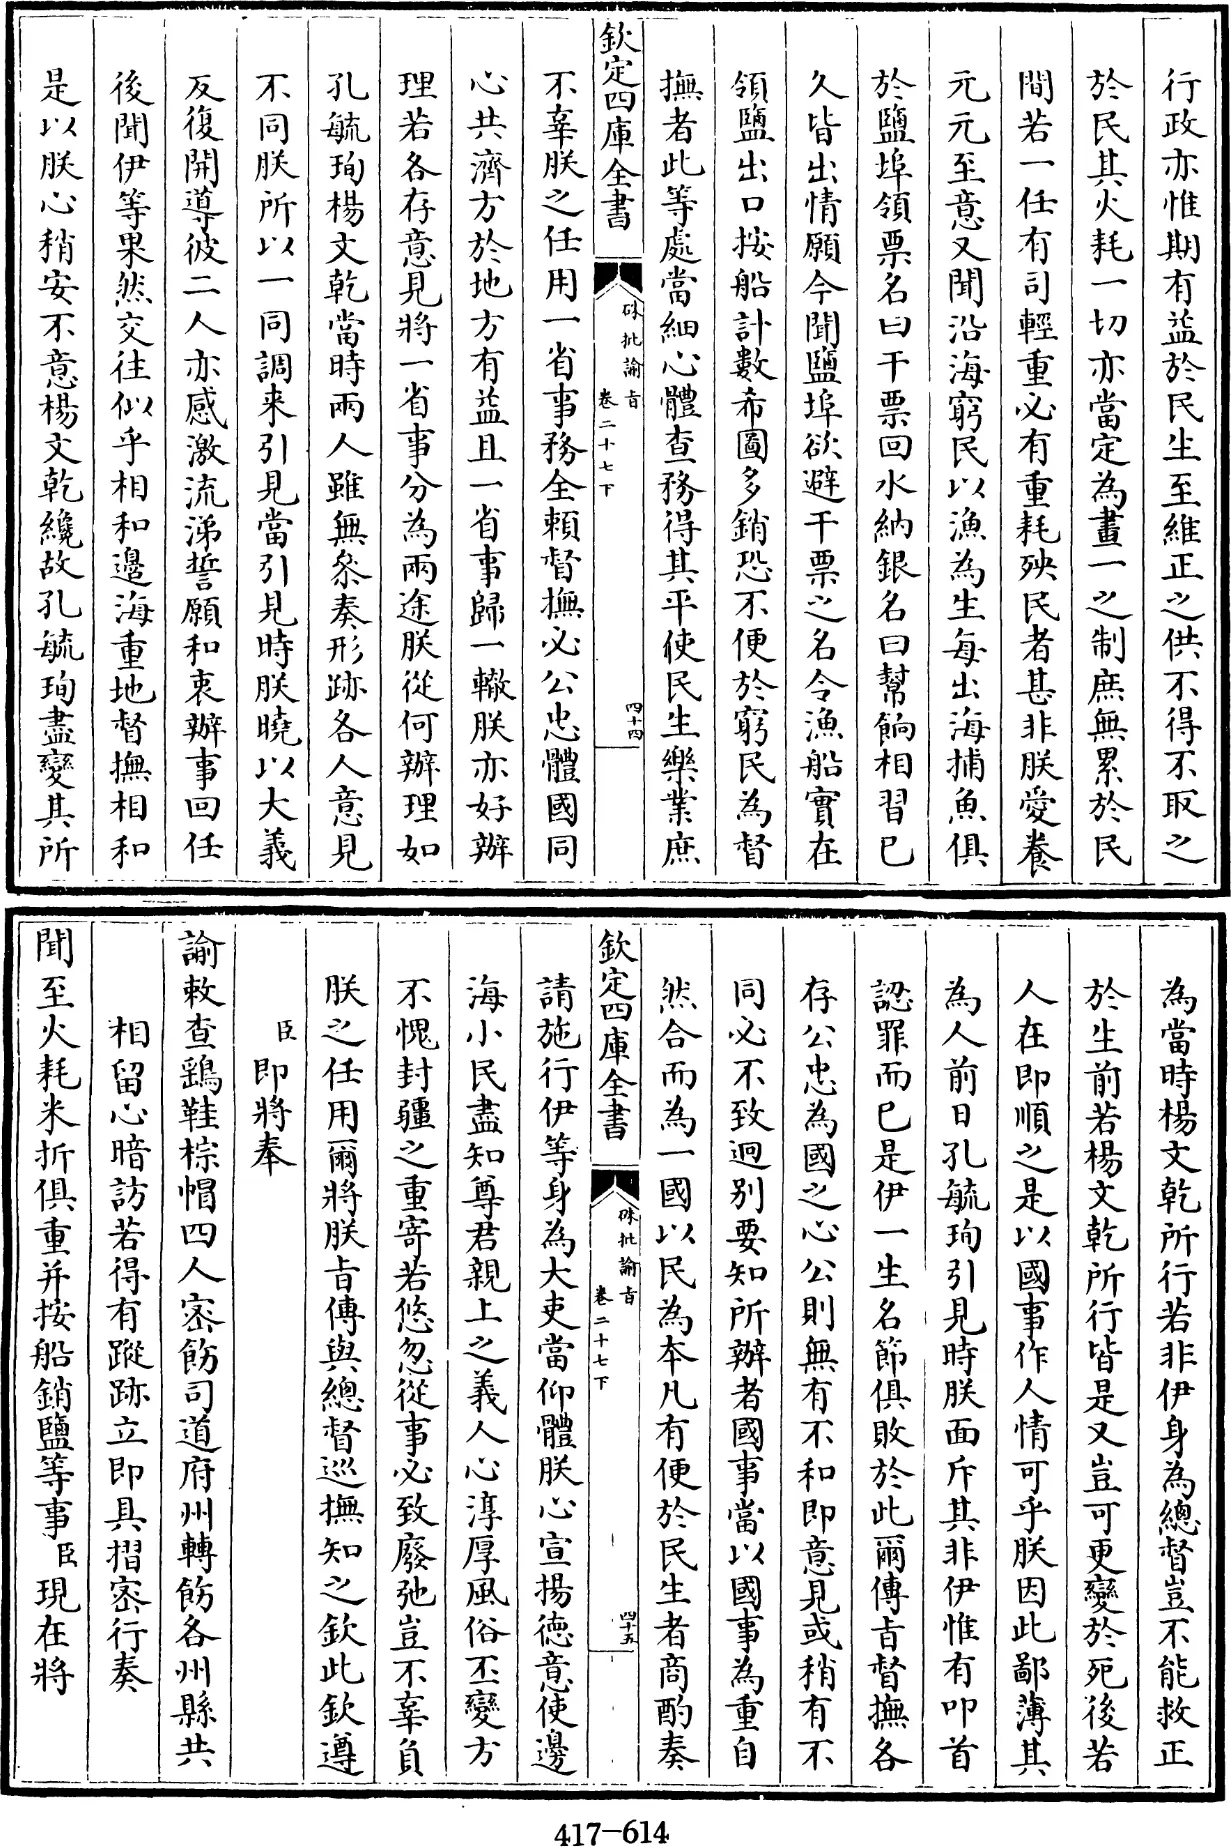 行政亦惟期有益於民生至維正之供不得不取之
於民其火耗一切亦當定為畫一之制庶無累於民
間若一任有司輕重必有重耗殃民者甚非朕愛養
元元至意又聞沿海窮民以漁為生每出海捕魚俱
於鹽埠領票名曰干票回水納銀名曰幫餉相習已
久皆出情願今聞鹽埠欲避干票之名令漁船實在
領鹽出口按船計數希圖多銷恐不便於窮民為督
撫者此等處當細心體查務得其平使民生樂業庶
欽定四庫全書
硃批諭旨
卷二十七下
四十四
不辜朕之任用一省事務全賴督撫必公忠體國同
心共濟方於地方有益且一省事歸一轍朕亦好辦
理若各存意見將一省事分為兩途朕從何辦理如
孔毓珣楊文乾當時兩人雖無叅奏形跡各人意見
不同朕所以一同調来引見當引見時朕曉以大義
反復開導彼二人亦感激流涕誓願和衷辦事回任
後聞伊等果然交往似乎相和邊海重地督撫相和
是以朕心稍安不意楊文乾纔故孔毓珣盡變其所
為當時楊文乾所行若非伊身為總督豈不能救正
於生前若楊文乾所行皆是又豈可更變於死後若
人在即順之是以國事作人情可乎朕因此鄙薄其
為人前日孔毓珣引見時朕面斥其非伊惟有叩首
認罪而已是伊一生名節俱敗於此爾傳旨督撫各
存公忠為國之心公則無有不和即意見或稍有不
同必不致迥别要知所辦者國事當以國事為重自
然合而為一國以民為本凡有便於民生者商酌奏
欽定四庫全書
硃批諭旨
卷二十七下
四十五
請施行伊等身為大吏當仰體朕心宣揚德意使邊
海小民盡知尊君親上之義人心淳厚風俗丕變方
不愧封疆之重寄若悠忽從事必致廢弛豈不辜負
朕之任用爾將朕旨傳與總督巡撫知之欽此欽遵
臣即將奉
諭敕查鷄鞋棕帽四人密飭司道府州轉飭各州縣共
相留心暗訪若得有蹤跡立即具摺密行奏
聞至火耗米折俱重并按船銷鹽等事臣現在將
417-614